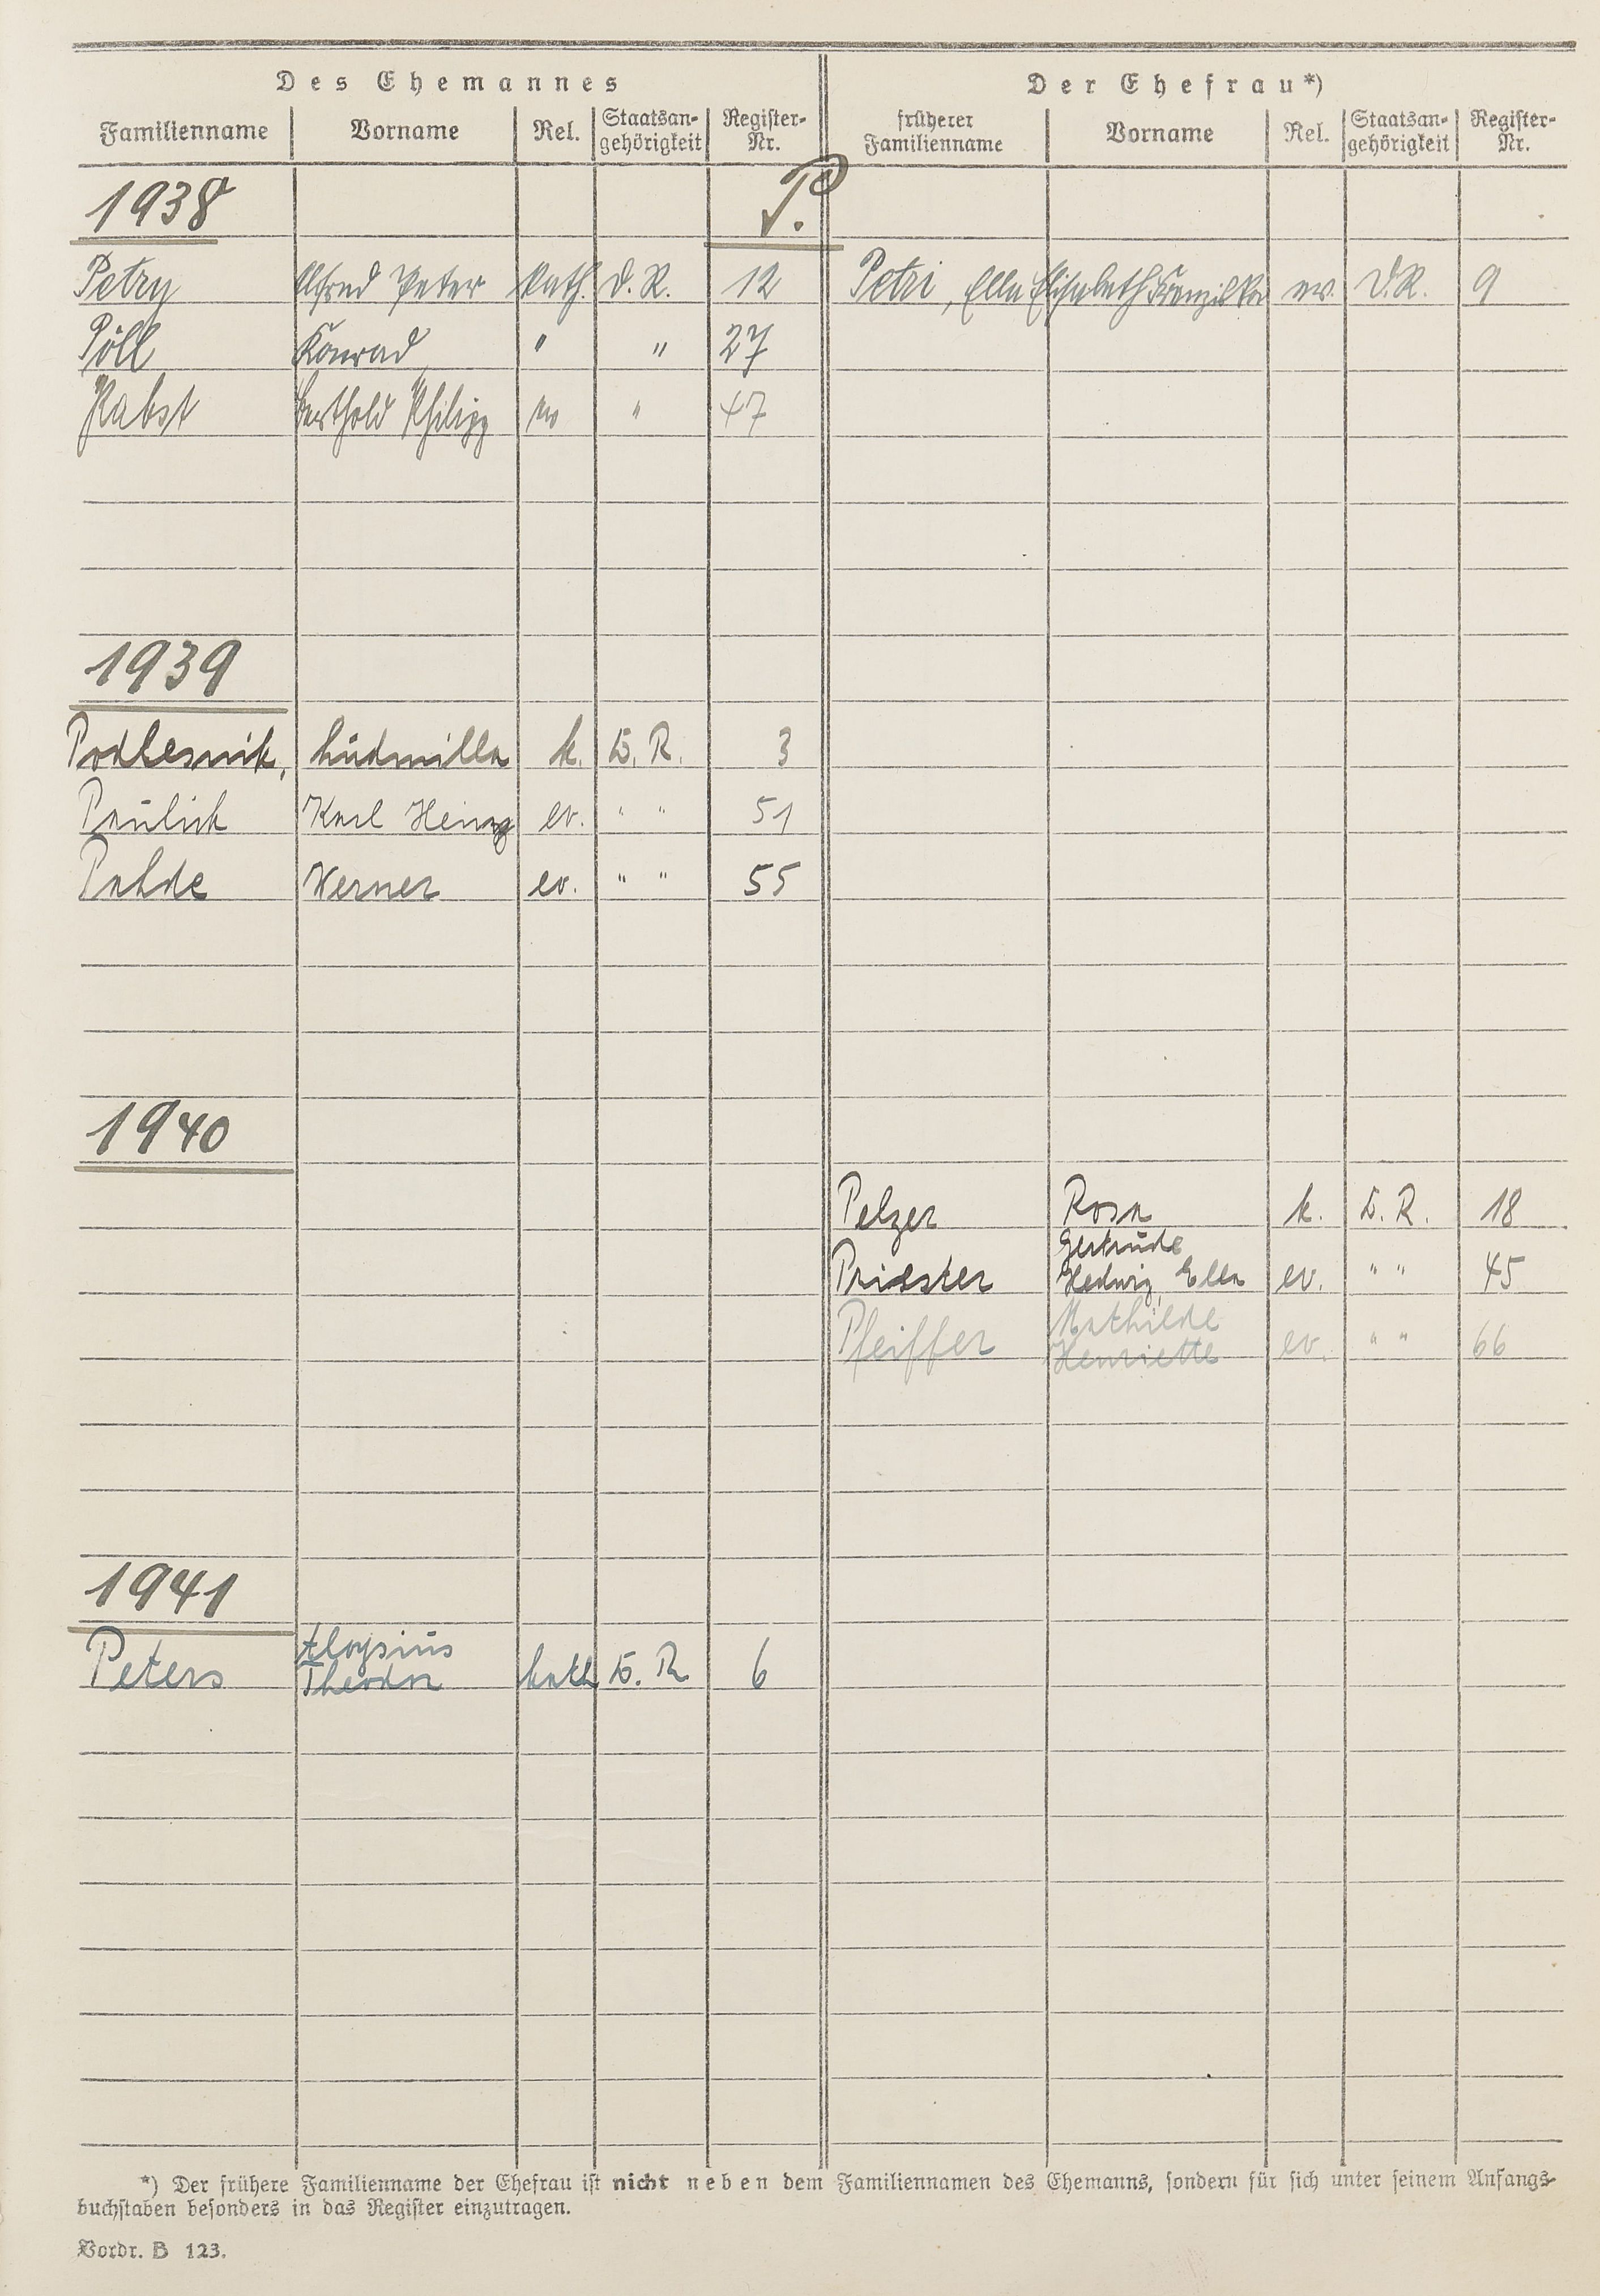 Des Ehemannes
Der Ehefrau*)
Familienname Vorname Rel. Staatsan-gehörigkeit Register-Nr. früherer Familienname Vorname Rel. Staatsan-gehörigkeit Register-Nr.
1938 P.
Petry Alfred Peter kath. D. R. 12 Petri, Ella Elisabeth ev. D.R. 9
Pöll Konrad " " 27
Pabst Berthold Philipp ev " 47
1939
Podlesnik, Ludmilla k. D. R. 3
Paulick Karl Heinz ev. " " 51
Pahde Werner ev. " " 55
1940
Pelzer Rosa k. D. R. 18
Gertrude
Priester Hedwig, Ella ev. " " 45
Mathilde
Pfeiffer Henriette ev. " " 66
1941
Aloysius
Peters Theodor kath D. R 6
*) Der frühere Familienname der Ehefrau ist nicht neben dem Familiennamen des Ehemanns, sondern für sich unter seinem Anfangs-
buchstaben besonders in das Register einzutragen.
Vordr. B 123.